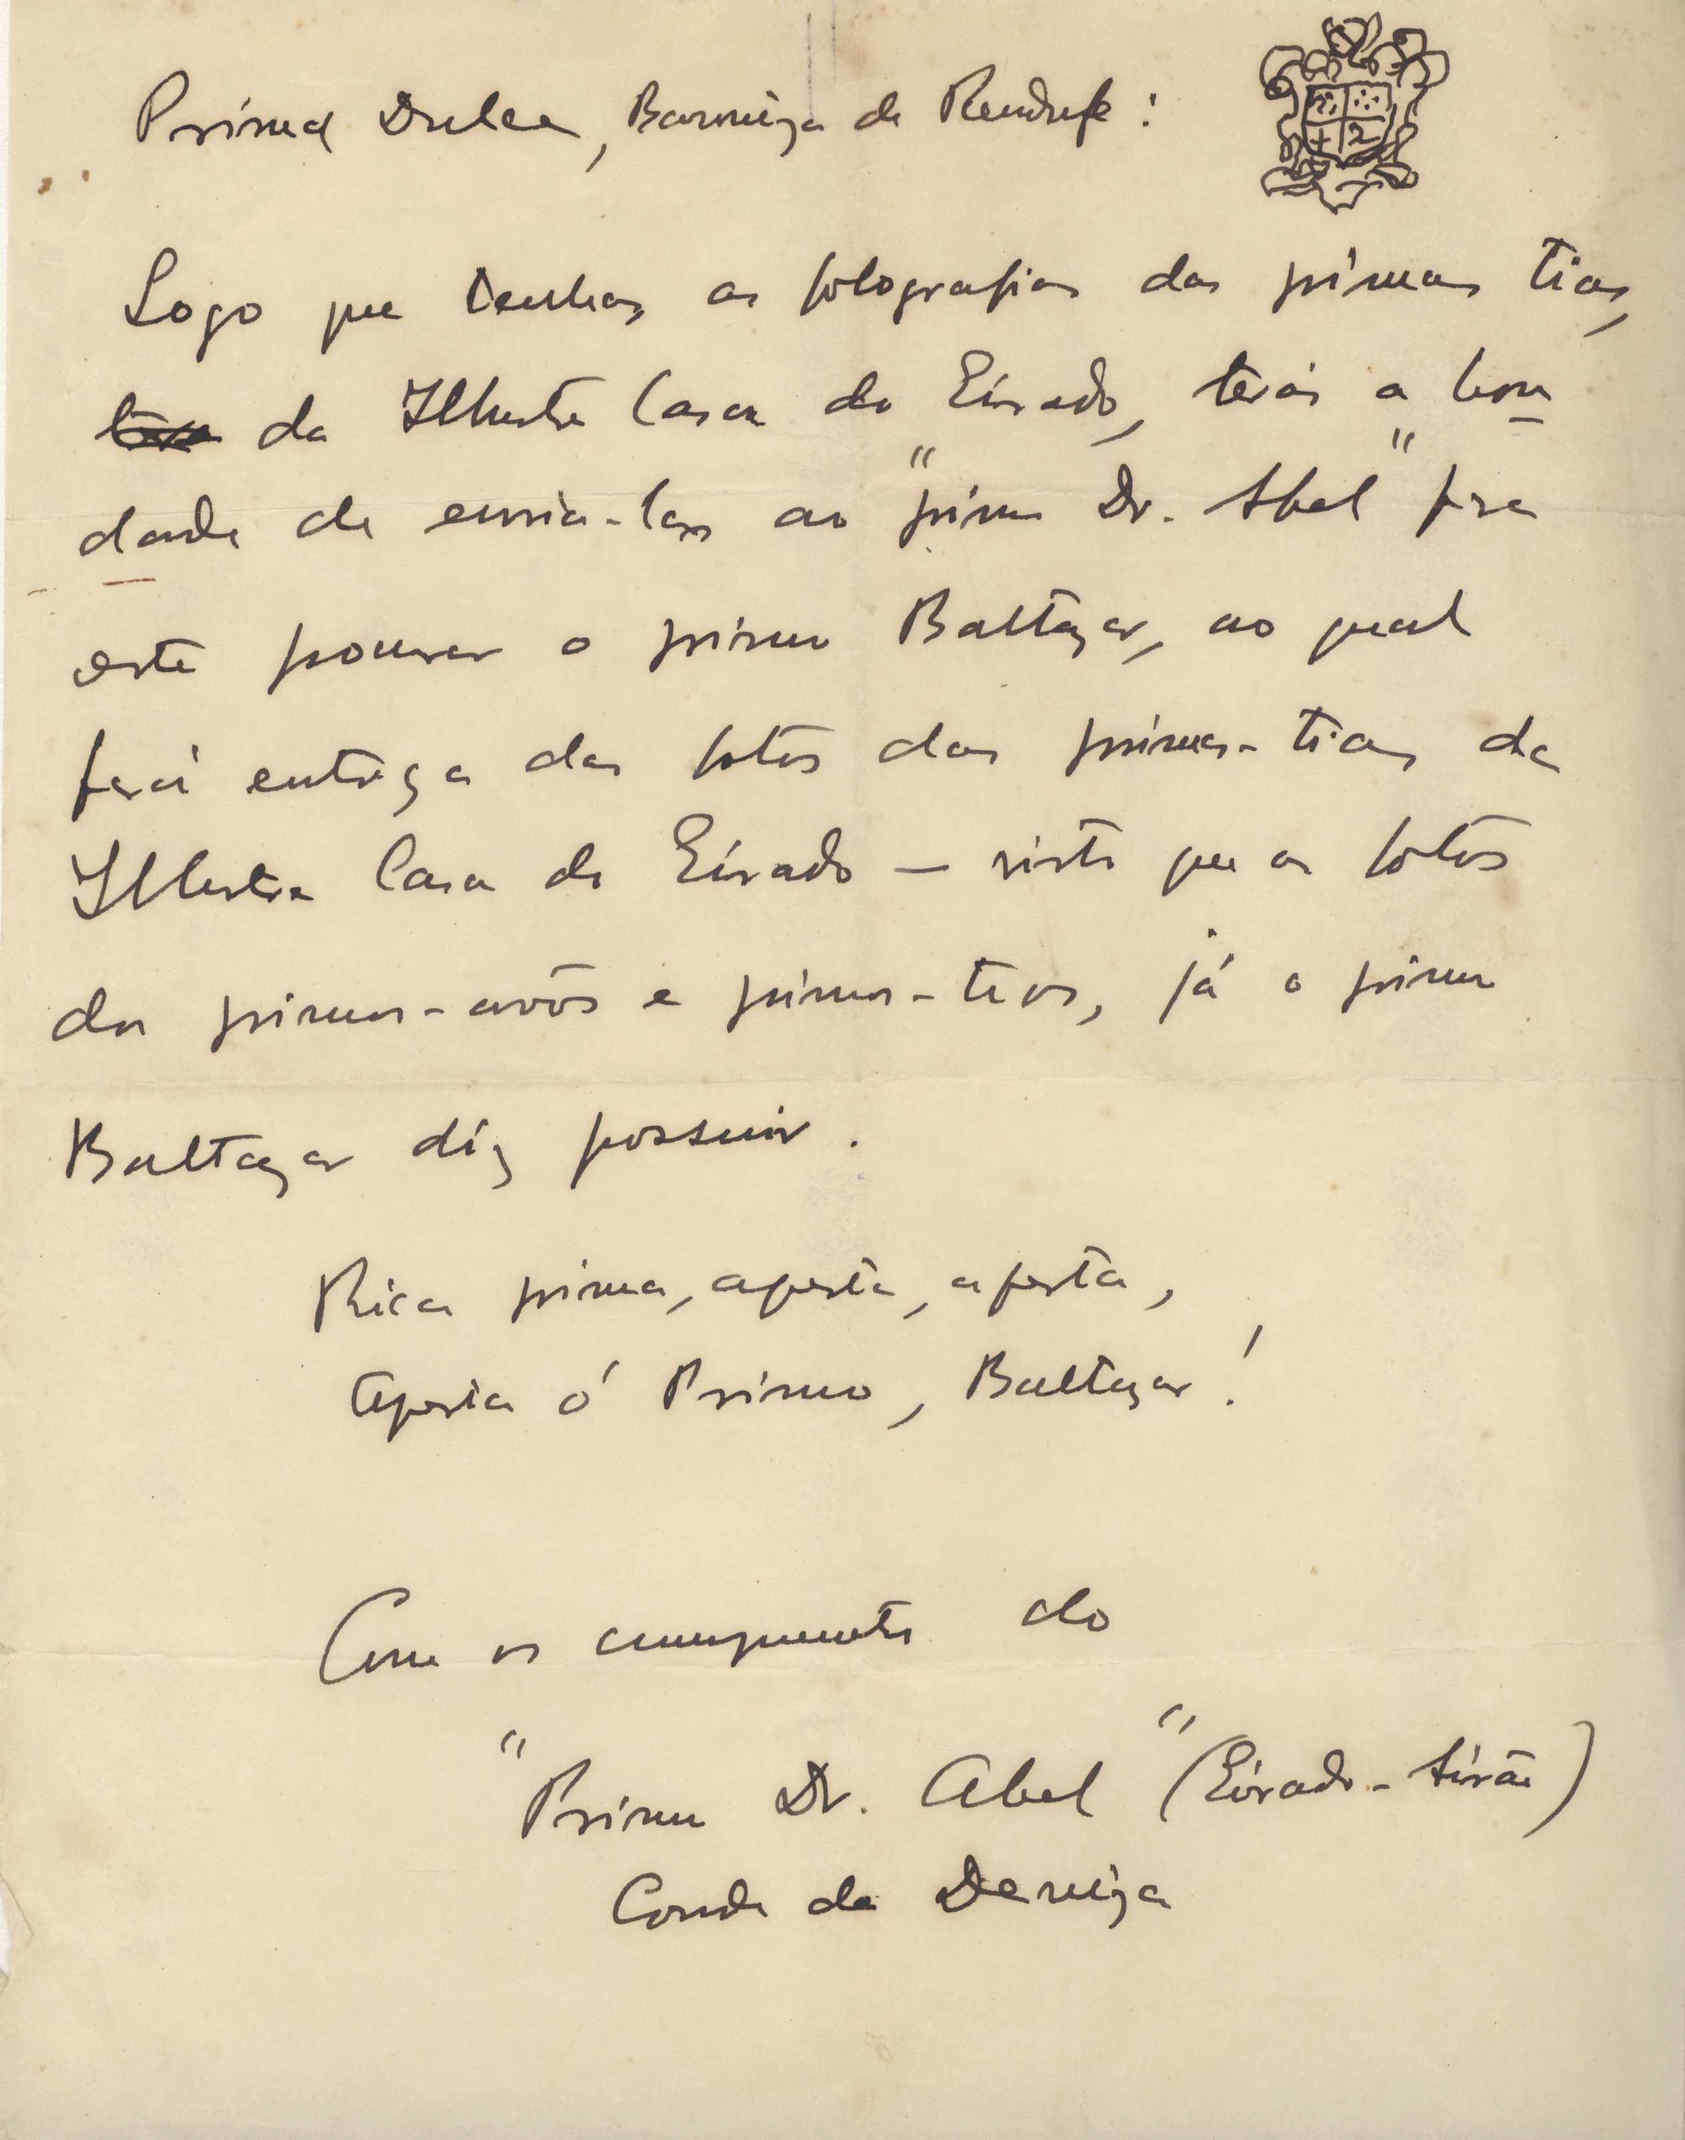 Prima Dulce, Barniga de Rendufe:
Logo que tenhas as fotografias das primas tias,
da Illustre Casa do Eirado, terás a bon
dade de envia-las ao "primo Dr. Abel" pra
este procurar o primo Baltazar, ao qual
fará entrega das fotos das primas-tias da
Illustre Casa do Eirado — visto que as fotos
dos primos-avós e primos-tios, já o primo
Baltazar diz possuir.
Rica prima, aperta, aperta,
Aperta ó Primo, Baltazar!
Com os cumprimentos do
"Primo Dr. Abel" (Eirado-Airão)
Conde da